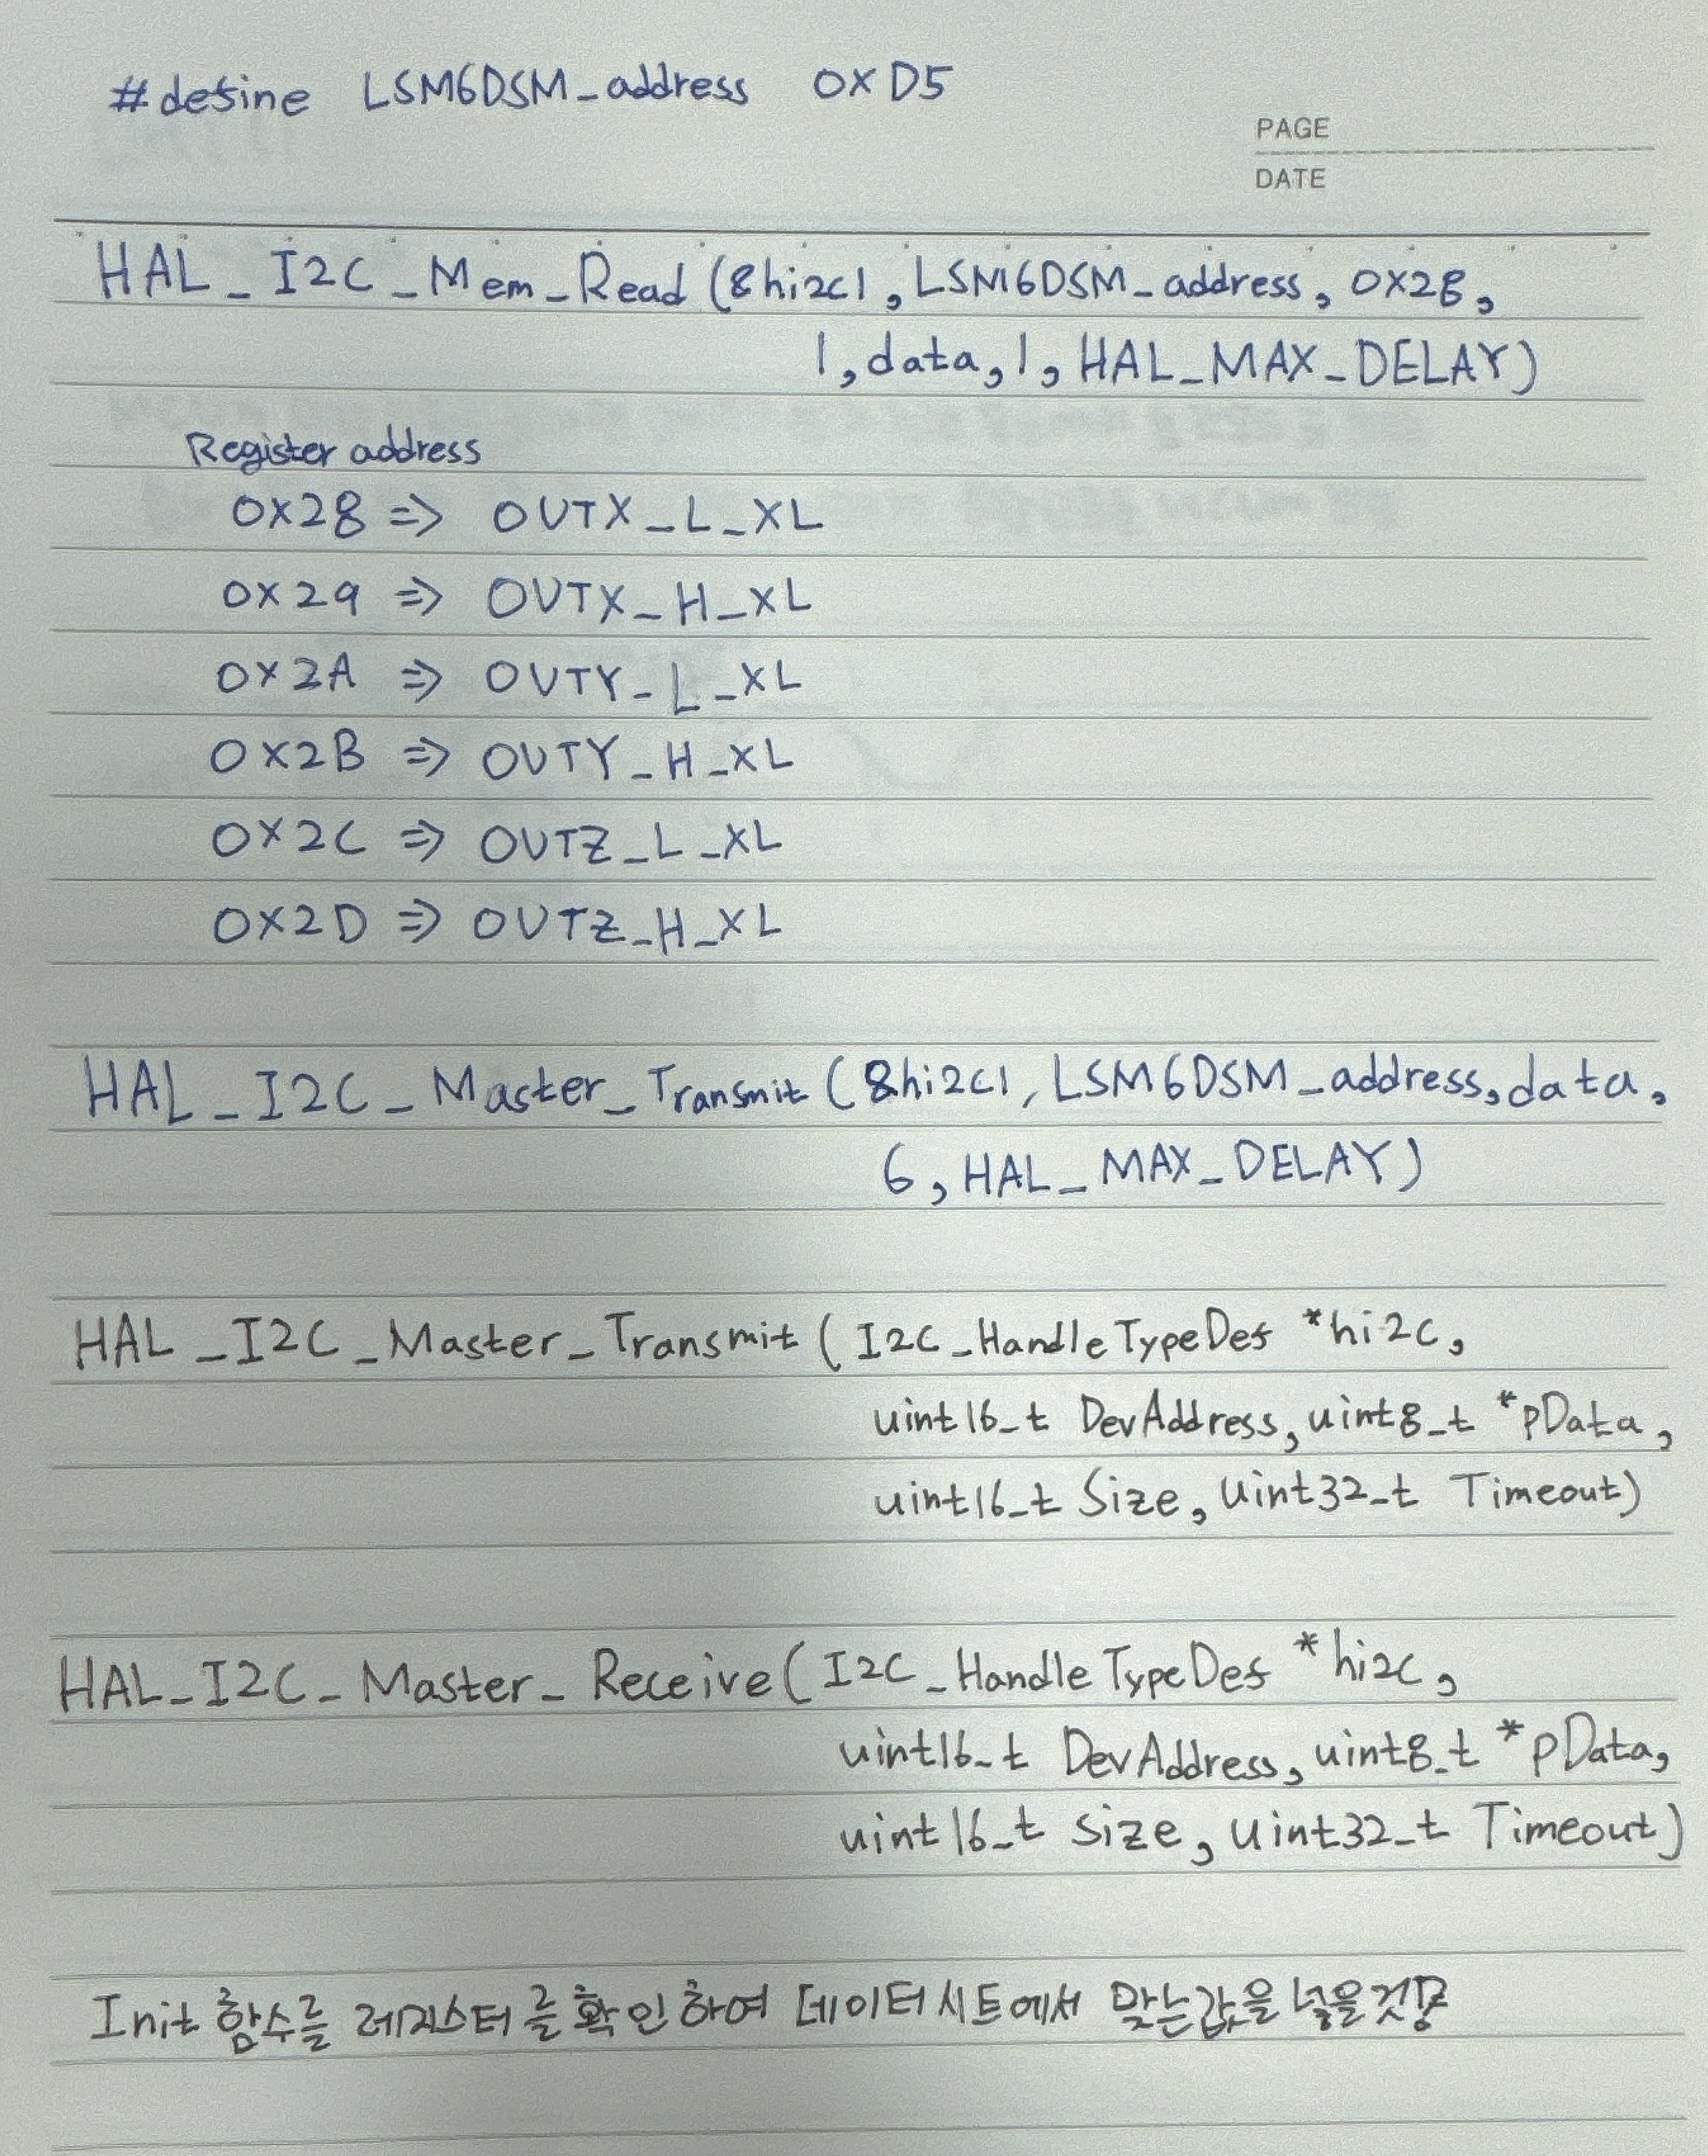 #define LSM6DSM_address 0XD5
PAGE
DATE
HAL_I2C_Mem_Read(&hi2c1, LSM6DSM_address, 0X28,
1, data, 1, HAL_MAX_DELAY)
Register address
0X28 => OUTX_L_XL
0X29 => OUTX_H_XL
0X2A => OUTY_L_XL
0X2B => OUTY_H_XL
0X2C => OUTZ_L_XL
0X2D => OUTZ_H_XL
HAL_I2C_Master_Transmit(&hi2c1, LSM6DSM_address, data,
6, HAL_MAX_DELAY)
HAL_I2C_Master_Transmit(I2C_HandleTypeDef *hi2c,
uint16_t DevAddress, uint8_t *pData,
uint16_t Size, uint32_t Timeout)
HAL_I2C_Master_Receive(I2C_HandleTypeDef *hi2c,
uint16_t DevAddress, uint8_t *pData,
uint16_t Size, uint32_t Timeout)
Init 함수를 레지스터를 확인하여 데이터시트에서 맞는값을 넣을것